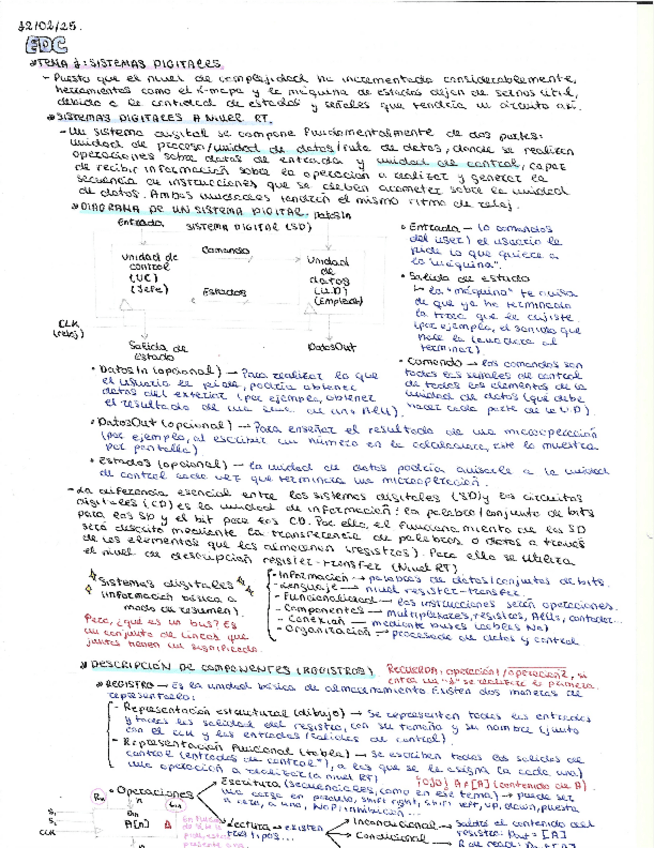 12/02/25.
EDC
TEMA 1: SISTEMAS DIGITALES
- Puesto que el nivel de complejidad ha incrementado considerablemente,
herramientas como el k-mapa y la máquina de estados dejan de sernos útil,
debido a la cantidad de estados y señales que tendría un circuito así.
SISTEMAS DIGITALES A NIVEL RT.
- Un sistema digital se compone funcionalmente de dos partes:
unidad de proceso/unidad de datos/ruta de datos, donde se realizan
operaciones sobre datos de entrada y unidad de control, capaz
de recibir información sobre la operación a realizar y generar la
secuencia de instrucciones que se deben acometer sobre la unidad
de datos. Ambas unidades tendrán el mismo ritmo de reloj.
DIAGRAMA DE UN SISTEMA DIGITAL.
DatosIn
Entrada
SISTEMA DIGITAL (SD)
Comando
unidad de
control
(UC)
(Jefe)
Estados
Unidad
de
datos
(U.D)
(Empleado)
CLK
(reloj)
Salida de
Estado
DatosOut
• Entrada → (o comandos
del user) el usuario le
pide lo que quiere a
la "máquina".
• Salida de estado
↳ la "máquina" te avisa
de que ya ha terminado
la tarea que le dijiste
(por ejemplo, el sonido que
hace la lavadora al
terminar).
• Comando → los comandos son
todas las señales de control
de todos los elementos de la
unidad de datos (qué debe
hacer cada parte de la U.D).
• DatosIn (opcional) → Para realizar lo que
el usuario le pide, podría obtener
datos del exterior (por ejemplo, obtener
el resultado de una suma de una ALU).
• DatosOut (opcional) → Para enseñar el resultado de una microoperación
(por ejemplo, al escribir un número en la calculadora, este lo muestra
por pantalla)
• Estados (opcional) → la unidad de datos podría avisarle a la unidad
de control cada vez que termina una microoperación.
- La diferencia esencial entre los sistemas digitales (SD) y los circuitos
digitales (CD) es la unidad de información: la palabra/conjunto de bits
para los SD y el bit para los CD. Por ello, el funcionamiento de los SD
será descrito mediante la transferencia de palabras o datos a través
de los elementos que los almacenan (registros). Para ello se utiliza
el nivel de descripción register-transfer (Nivel RT)
Sistemas digitales
(información básica a
modo de resumen).
- Información → palabras de datos/conjuntos de bits.
- Lenguaje → nivel register-transfer.
- Funcionalidad → las instrucciones serán operaciones.
- Componentes → multiplexores, registros, ALUs, contador...
- Conexión → mediante buses (cables no)
- Organización → procesado de datos y control
Pero, ¿qué es un bus? Es
un conjunto de líneas que
juntas tienen un significado.
DESCRIPCIÓN DE COMPONENTES (REGISTROS)
RECUERDA: operación1/operación2, si
entra un "1" se realiza la primera.
REGISTRO → Es la unidad básica de almacenamiento. Existen dos maneras de
representarlo:
- Representación estructural (dibujo) → Se representan todas las entradas
y todas las salidas del registro, con su tamaño y su nombre (junto
con el CLK y las entradas/salidas de control).
- Representación funcional (tabla) → Se escriben todas las salidas de
control (entradas de control*), a las que se le asigna (a cada una)
una operación a realizar (a nivel RT)
¡OJO! A≠[A] (contenido de A).
• Operaciones
Escritura (secuenciales, como en este tema) → puede ser
una carga en paralelo, shift right, shift left, up, down, puesta
a cero, a uno, NOP, inhibición...
Lectura → existen
tres tipos...
Incondicional → Saldrá el contenido del
registro: Dout = [A]
Condicional → R de read:
CLK
A[n]